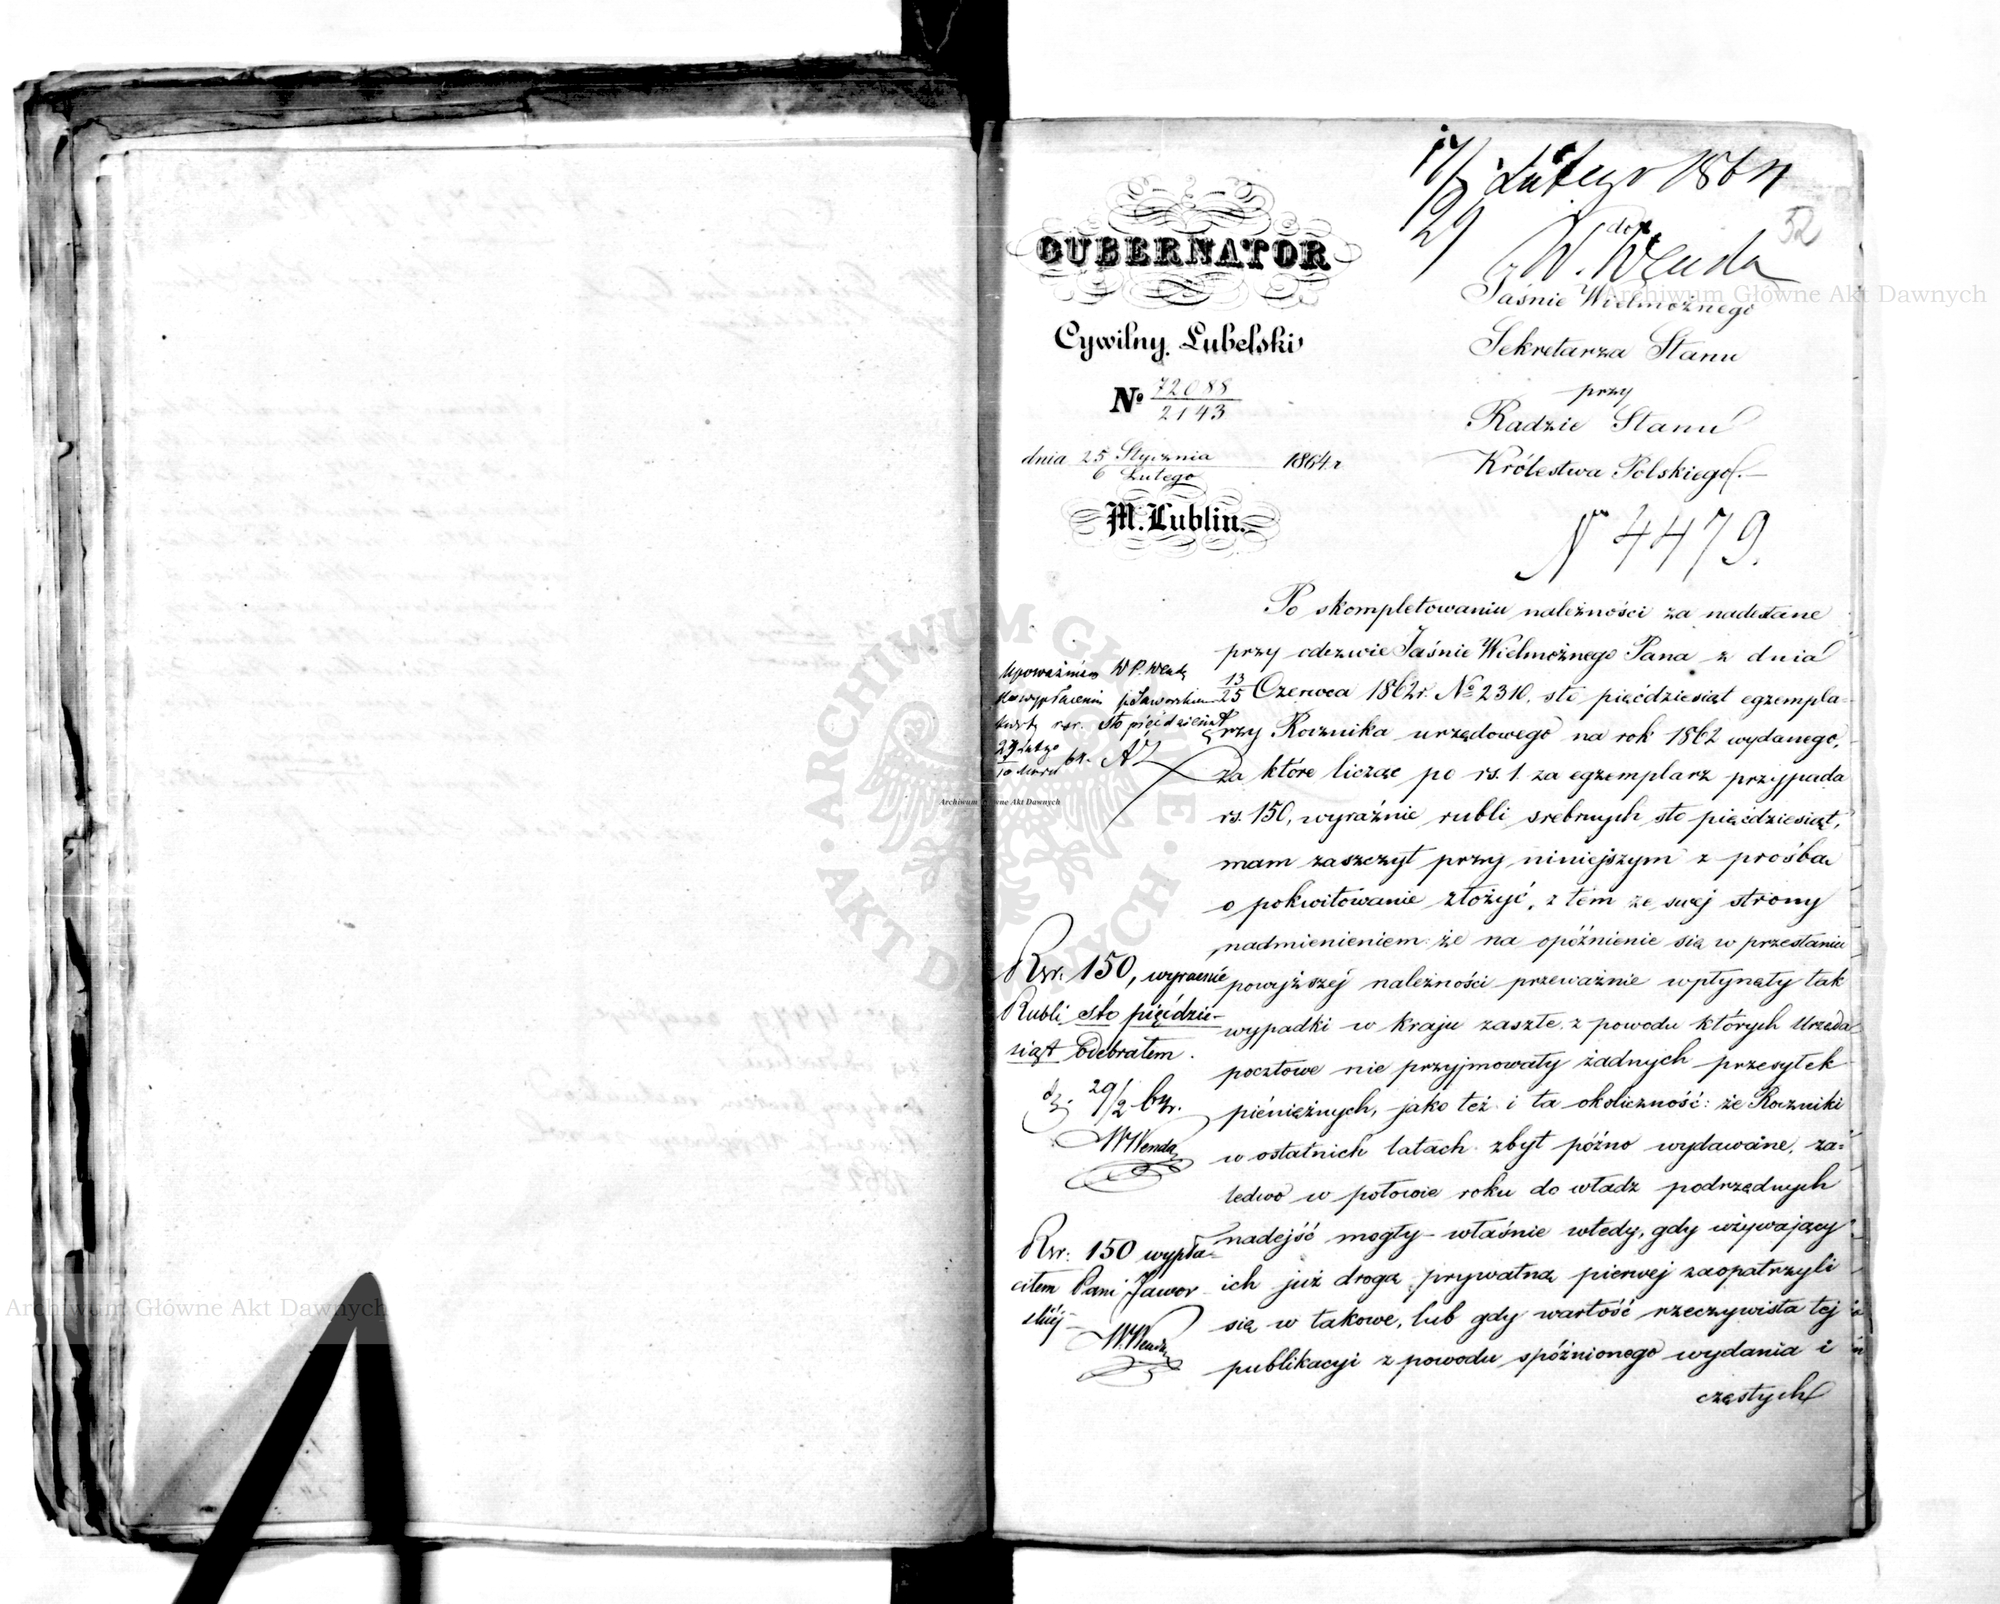 Lutego 1864
29
W. Wenda
52
GUBERNATOR
Cywilny Lubelski
No 72088
2143
dnia 25 Stycznia 1864 r
6 Lutego
M. Lublin.
Do
Jaśnie Wielmożnego
Sekretarza Stanu
przy
Radzie Stanu
Królestwa Polskiego.
N 4479.
Po skompletowaniu należności za nadesłane
przy odezwie Jaśnie Wielmożnego Pana z dnia
13/25 Czerwca 1862 r. No 2310, sto pięćdziesiąt egzempla-
rzy Rocznika urzędowego na rok 1862 wydanego,
za które licząc po rs. 1. za egzemplarz przypada
rs. 150, wyraźnie rubli srebrnych sto pięćdziesiąt,
mam zaszczyt przy niniejszym z prośbą
o pokwitowanie złożyć, z tem ze swej strony
nadmienieniem: że na opóźnienie się w przesłaniu
powyższej należności przeważnie wpłynęły tak
wypadki w kraju zaszłe z powodu których Urzęda
pocztowe nie przyjmowały żadnych przesyłek
pieniężnych, jako też i ta okoliczność: że Roczniki
w ostatnich latach zbyt późno wydawane, za-
ledwo w połowie roku do władz podrzędnych
nadejść mogły właśnie wtedy, gdy używający
ich już drogą prywatną pierwej zaopatrzyli
się w takowe, lub gdy wartość rzeczywista tej
publikacyi z powodu spóźnionego wydania i
częstych
Upoważniam WP. Wendę
do wypłacenia p. Jaworskiej
kwotę rsr. sto pięćdziesiąt
Rsr. 150, wyraźnie
Rubli sto pięćdzie-
siąt Odebrałem.
d. 29/2 br.
W Wenda
Rsr: 150 wypła-
ciłem Pani Jawor
skiej
W. Wenda
Archiwum Główne Akt Dawnych
Archiwum Główne Akt Dawnych
Archiwum Główne Akt Dawnych
ARCHIWUM GŁÓWNE
AKT DAWNYCH